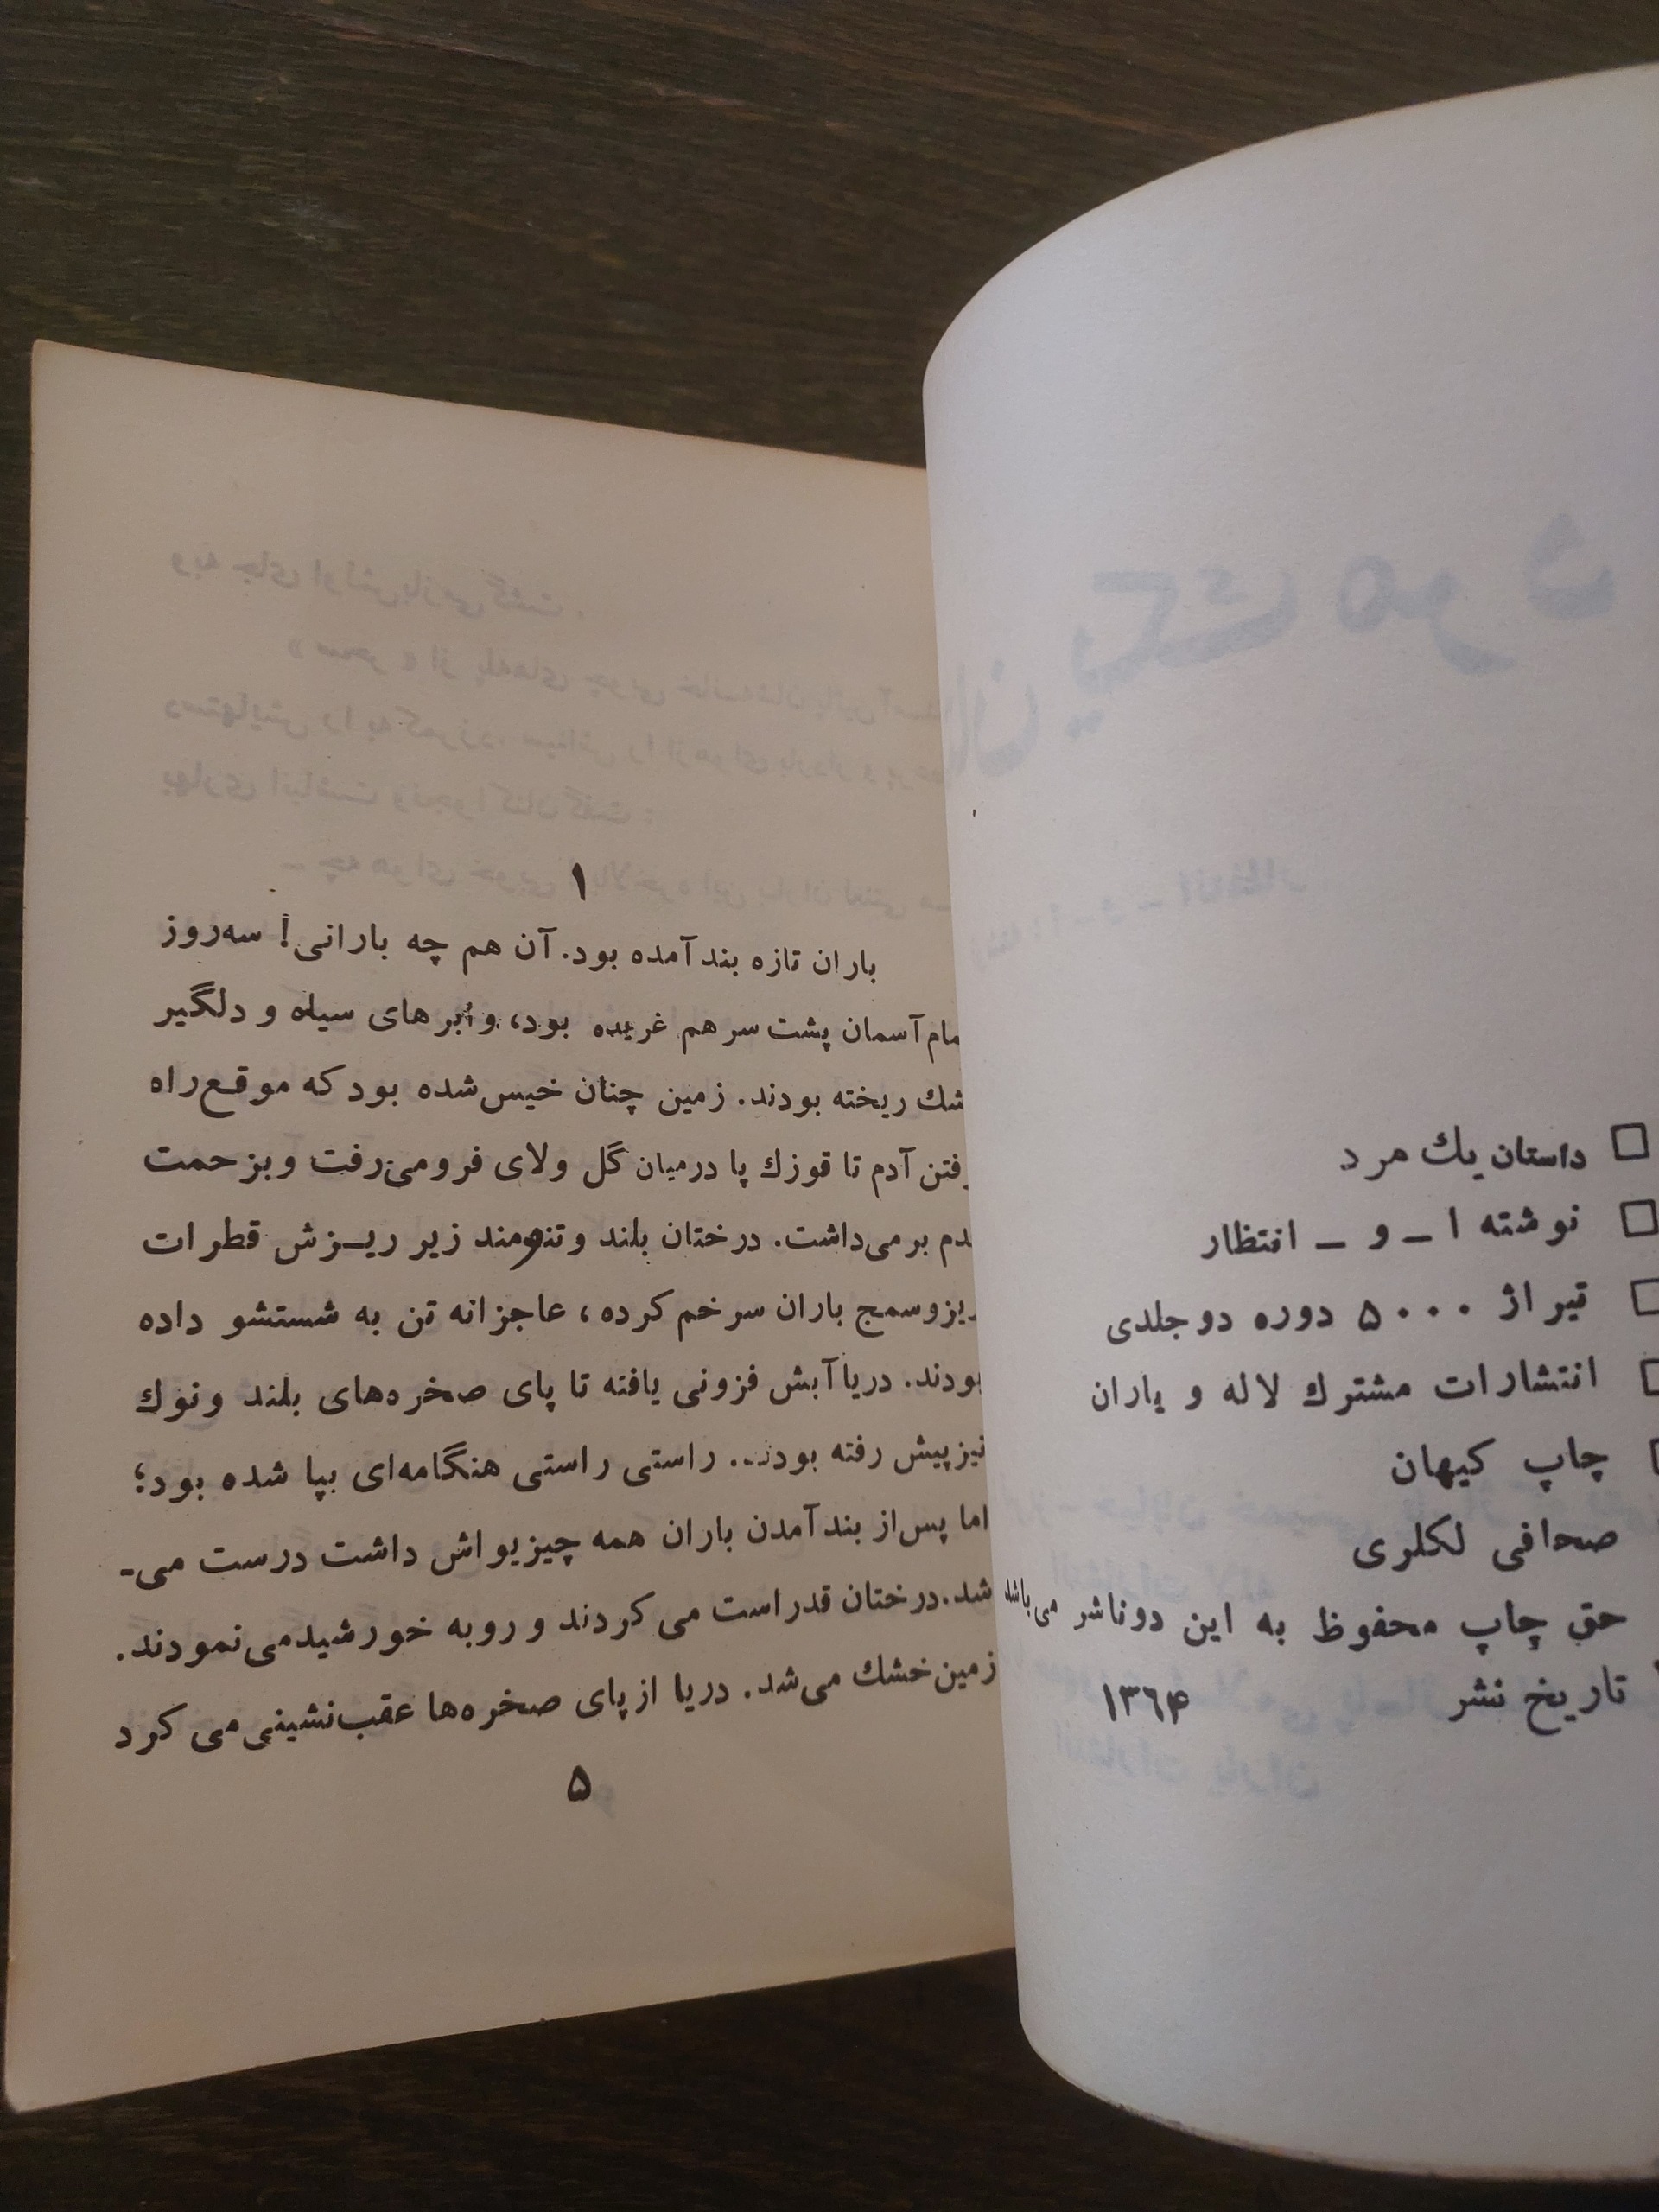 □ داستان يك مرد
□ نوشته ا ـ و ـ انتظار
□ تیراژ ۵۰۰۰ دوره دوجلدی
□ انتشارات مشترك لاله و یاران
چاپ کیهان
صحافی لکلری
حق چاپ محفوظ به این دوناشر می‌باشد
تاریخ نشر ۱۳۶۴
۱
باران تازه بندآمده بود. آن هم چه بارانی! سه‌روز
آسمان پشت سرهم غریده بود، و ابرهای سیاه و دلگیر
ریخته بودند. زمین چنان خیس‌شده بود که موقع‌راه
آدم تا قوزك پا درمیان گل ولای فرومی‌رفت وبزحمت
برمی‌داشت. درختان بلند وتنومند زیر ریـزش قطرات
وسمج باران سرخم‌کرده، عاجزانه تن به شستشو داده
بودند. دریاآبش فزونی یافته تا پای صخره‌های بلند ونوك
نیزپیش رفته بود... راستی راستی هنگامه‌ای بپا شده بود؛
اما پس‌از بندآمدن باران همه چیزیواش داشت درست می-
شد. درختان قدراست می‌کردند و روبه خورشیدمی‌نمودند.
زمین‌خشك می‌شد. دریا ازپای صخره‌ها عقب‌نشینی‌می‌کرد
۵